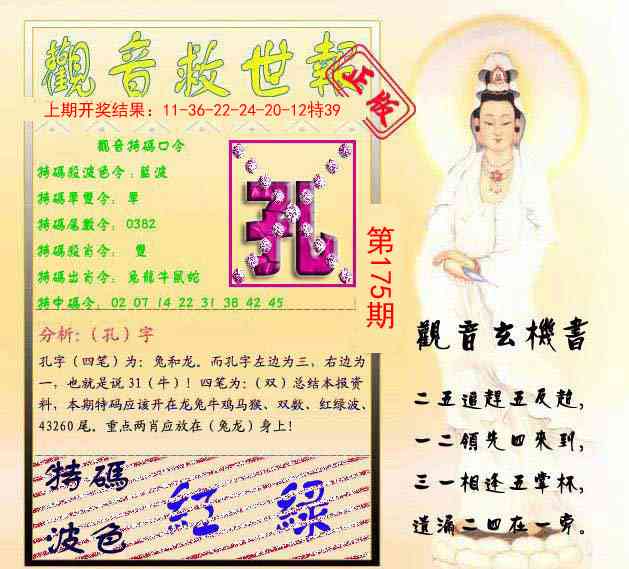 觀音救世報
正版
上期开奖结果：11-36-22-24-20-12特39
觀音特碼口令
特碼殺波色令：藍波
特碼單雙令：單
特碼尾數令：0382
特碼殺肖令：雙
特碼出肖令：兔龍牛鼠蛇
特中碼令：02 07 14 22 31 38 42 45
孔
第175期
分析:（孔）字
孔字（四笔）为：兔和龙。而孔字左边为三，右边为
一，也就是说31（牛）！四笔为：（双）总结本报资
料，本期特码应该开在龙兔牛鸡马猴、双数、红绿波、
43260尾。重点两肖应放在（兔龙）身上！
特碼
波色
紅 綠
觀音玄機書
二五追趕五反超，
一二領先四來到，
三一相逢五掌杯，
遺漏二四在一旁。